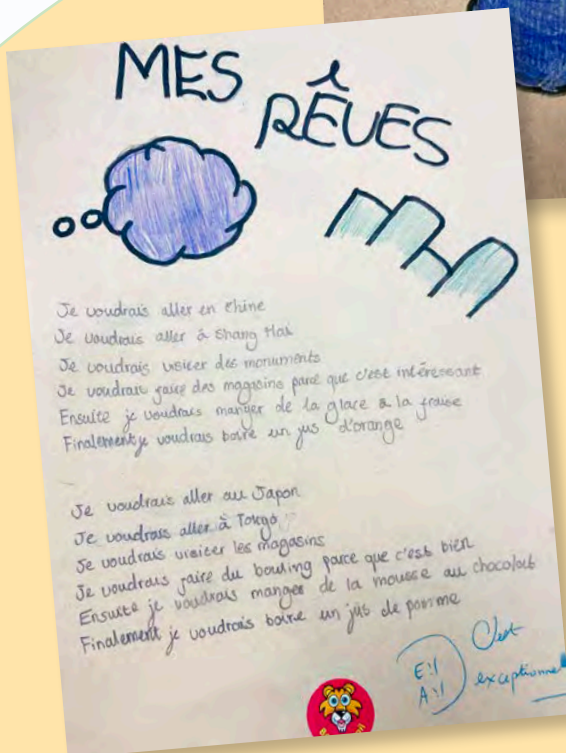 MES
RÊVES
Je voudrais aller en Chine
Je voudrais aller à Shang Hai
Je voudrais visiter des monuments
Je voudrais faire des magasins parce que c'est intéressant
Ensuite je voudrais manger de la glace à la fraise
Finalement je voudrais boire un jus d'orange
Je voudrais aller au Japon
Je voudrais aller à Tokyo
Je voudrais visiter les magasins
Je voudrais faire du bowling parce que c'est bien
Ensuite je voudrais manger de la mousse au chocolat
Finalement je voudrais boire un jus de pomme
C'est
E:1
A:1
exceptionnel